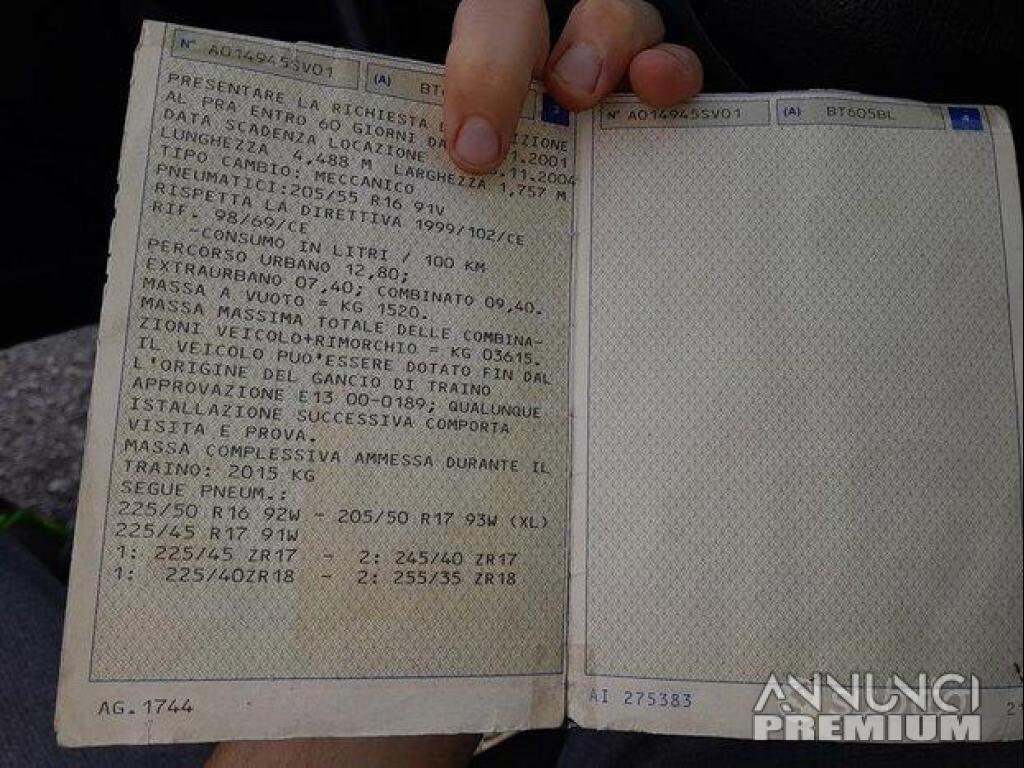 N° A014945SV01
(A) BT6
PRESENTARE LA RICHIESTA D IZIONE
AL PRA ENTRO 60 GIORNI DA .1.2001
DATA SCADENZA LOCAZIONE .11.2004
LUNGHEZZA 4,488 M LARGHEZZA 1,757 M
TIPO CAMBIO: MECCANICO
PNEUMATICI:205/55 R16 91V
RISPETTA LA DIRETTIVA 1999/102/CE
RIF. 98/69/CE
-CONSUMO IN LITRI / 100 KM
PERCORSO URBANO 12,80;
EXTRAURBANO 07,40; COMBINATO 09,40.
MASSA A VUOTO = KG 1520.
MASSA MASSIMA TOTALE DELLE COMBINA-
ZIONI VEICOLO+RIMORCHIO = KG 03615.
IL VEICOLO PUO'ESSERE DOTATO FIN DAL
L'ORIGINE DEL GANCIO DI TRAINO
APPROVAZIONE E13 00-0189; QUALUNQUE
ISTALLAZIONE SUCCESSIVA COMPORTA
VISITA E PROVA.
MASSA COMPLESSIVA AMMESSA DURANTE IL
TRAINO: 2015 KG
SEGUE PNEUM.:
225/50 R16 92W - 205/50 R17 93W (XL)
225/45 R17 91W
1: 225/45 ZR17 - 2: 245/40 ZR17
1: 225/40ZR18 - 2: 255/35 ZR18
AG.1744
N° A014945SV01
(A) BT605BL
4
AI 275383
ANNUNCI
PREMIUM